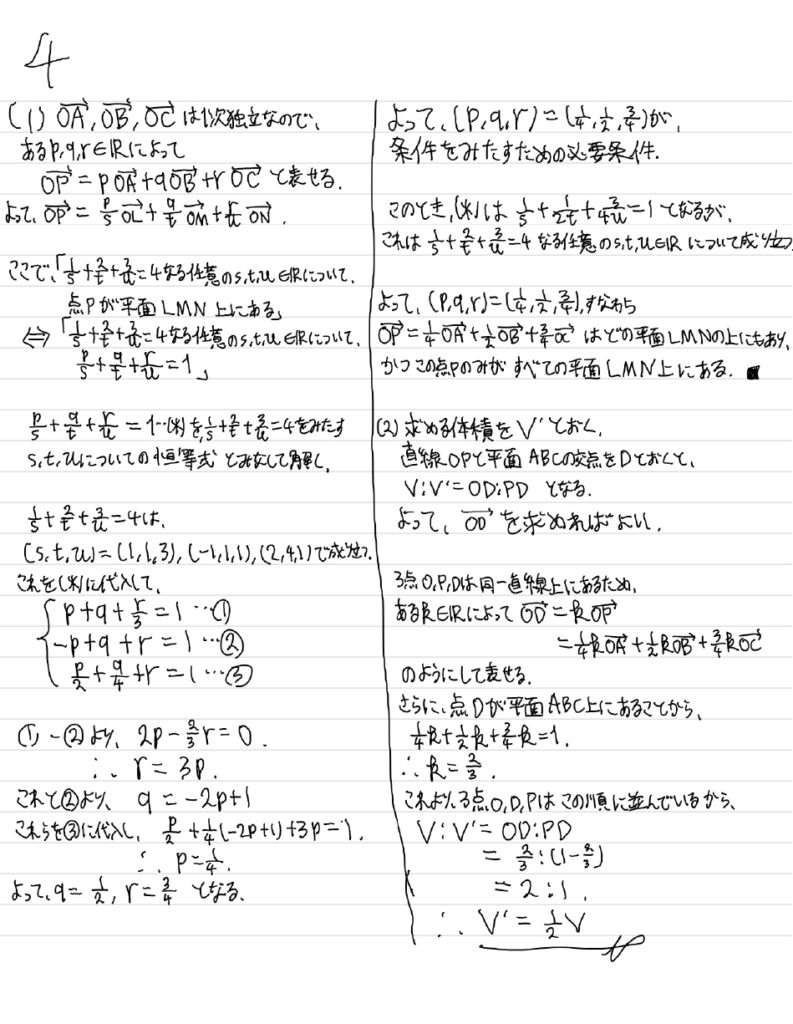 4
(1) $\overrightarrow{OA}, \overrightarrow{OB}, \overrightarrow{OC}$ は1次独立なので、
ある $p, q, r \in \mathbb{R}$ によって
$\overrightarrow{OP} = p\overrightarrow{OA} + q\overrightarrow{OB} + r\overrightarrow{OC}$ と表せる.
よって、$\overrightarrow{OP} = \frac{p}{s}\overrightarrow{OL} + \frac{q}{t}\overrightarrow{OM} + \frac{r}{u}\overrightarrow{ON}$.
ここで、「$\frac{1}{s} + \frac{2}{t} + \frac{3}{u} = 4$ なる任意の $s, t, u \in \mathbb{R}$ について、
点Pが平面LMN上にある」
⇔ 「$\frac{1}{s} + \frac{2}{t} + \frac{3}{u} = 4$ なる任意の $s, t, u \in \mathbb{R}$ について、
$\frac{p}{s} + \frac{q}{t} + \frac{r}{u} = 1$」
$\frac{p}{s} + \frac{q}{t} + \frac{r}{u} = 1$ …(*) を、$\frac{1}{s} + \frac{2}{t} + \frac{3}{u} = 4$ をみたす
s, t, u についての恒等式とみなして解く.
$\frac{1}{s} + \frac{2}{t} + \frac{3}{u} = 4$ は、
(s, t, u) = (1, 1, 3), (-1, 1, 1), (2, 4, 1) で成り立つ.
これを(*)に代入して、
$p + q + \frac{r}{3} = 1$ …①
$-p + q + r = 1$ …②
$\frac{p}{2} + \frac{q}{4} + r = 1$ …③
① - ②より、$2p - \frac{2}{3}r = 0$.
∴ r = 3p.
これと②より、q = -2p+1
これらを③に代入し、$\frac{p}{2} + \frac{1}{4}(-2p+1) + 3p = 1$.
∴ $p = \frac{1}{4}$.
よって、$q = \frac{1}{2}, r = \frac{3}{4}$ となる.
よって、$(p, q, r) = (\frac{1}{4}, \frac{1}{2}, \frac{3}{4})$ が、
条件をみたすための必要条件.
このとき、(*)は $\frac{1}{4s} + \frac{1}{2t} + \frac{3}{4u} = 1$ となるが、
これは $\frac{1}{s} + \frac{2}{t} + \frac{3}{u} = 4$ なる任意の $s, t, u \in \mathbb{R}$ について成り立つ
よって、$(p, q, r) = (\frac{1}{4}, \frac{1}{2}, \frac{3}{4})$, すなわち
$\overrightarrow{OP} = \frac{1}{4}\overrightarrow{OA} + \frac{1}{2}\overrightarrow{OB} + \frac{3}{4}\overrightarrow{OC}$ はどの平面LMNの上にもあり、
かつこの点Pのみがすべての平面LMN上にある. ■
(2) 求める体積を V' とおく.
直線OPと平面ABCの交点をDとおくと、
V : V' = OD : PD となる.
よって、$\overrightarrow{OD}$ を求めればよい.
3点O, P, Dは同一直線上にあるため、
ある $k \in \mathbb{R}$ によって $\overrightarrow{OD} = k\overrightarrow{OP}$
$= \frac{1}{4}k\overrightarrow{OA} + \frac{1}{2}k\overrightarrow{OB} + \frac{3}{4}k\overrightarrow{OC}$
のようにして表せる.
さらに、点Dが平面ABC上にあることから、
$\frac{1}{4}k + \frac{1}{2}k + \frac{3}{4}k = 1$.
∴ $k = \frac{2}{3}$.
これより、3点O, D, Pはこの順に並んでいるから、
V : V' = OD : PD
$= \frac{2}{3} : (1 - \frac{2}{3})$
= 2 : 1.
∴ $V' = \frac{1}{2}V$